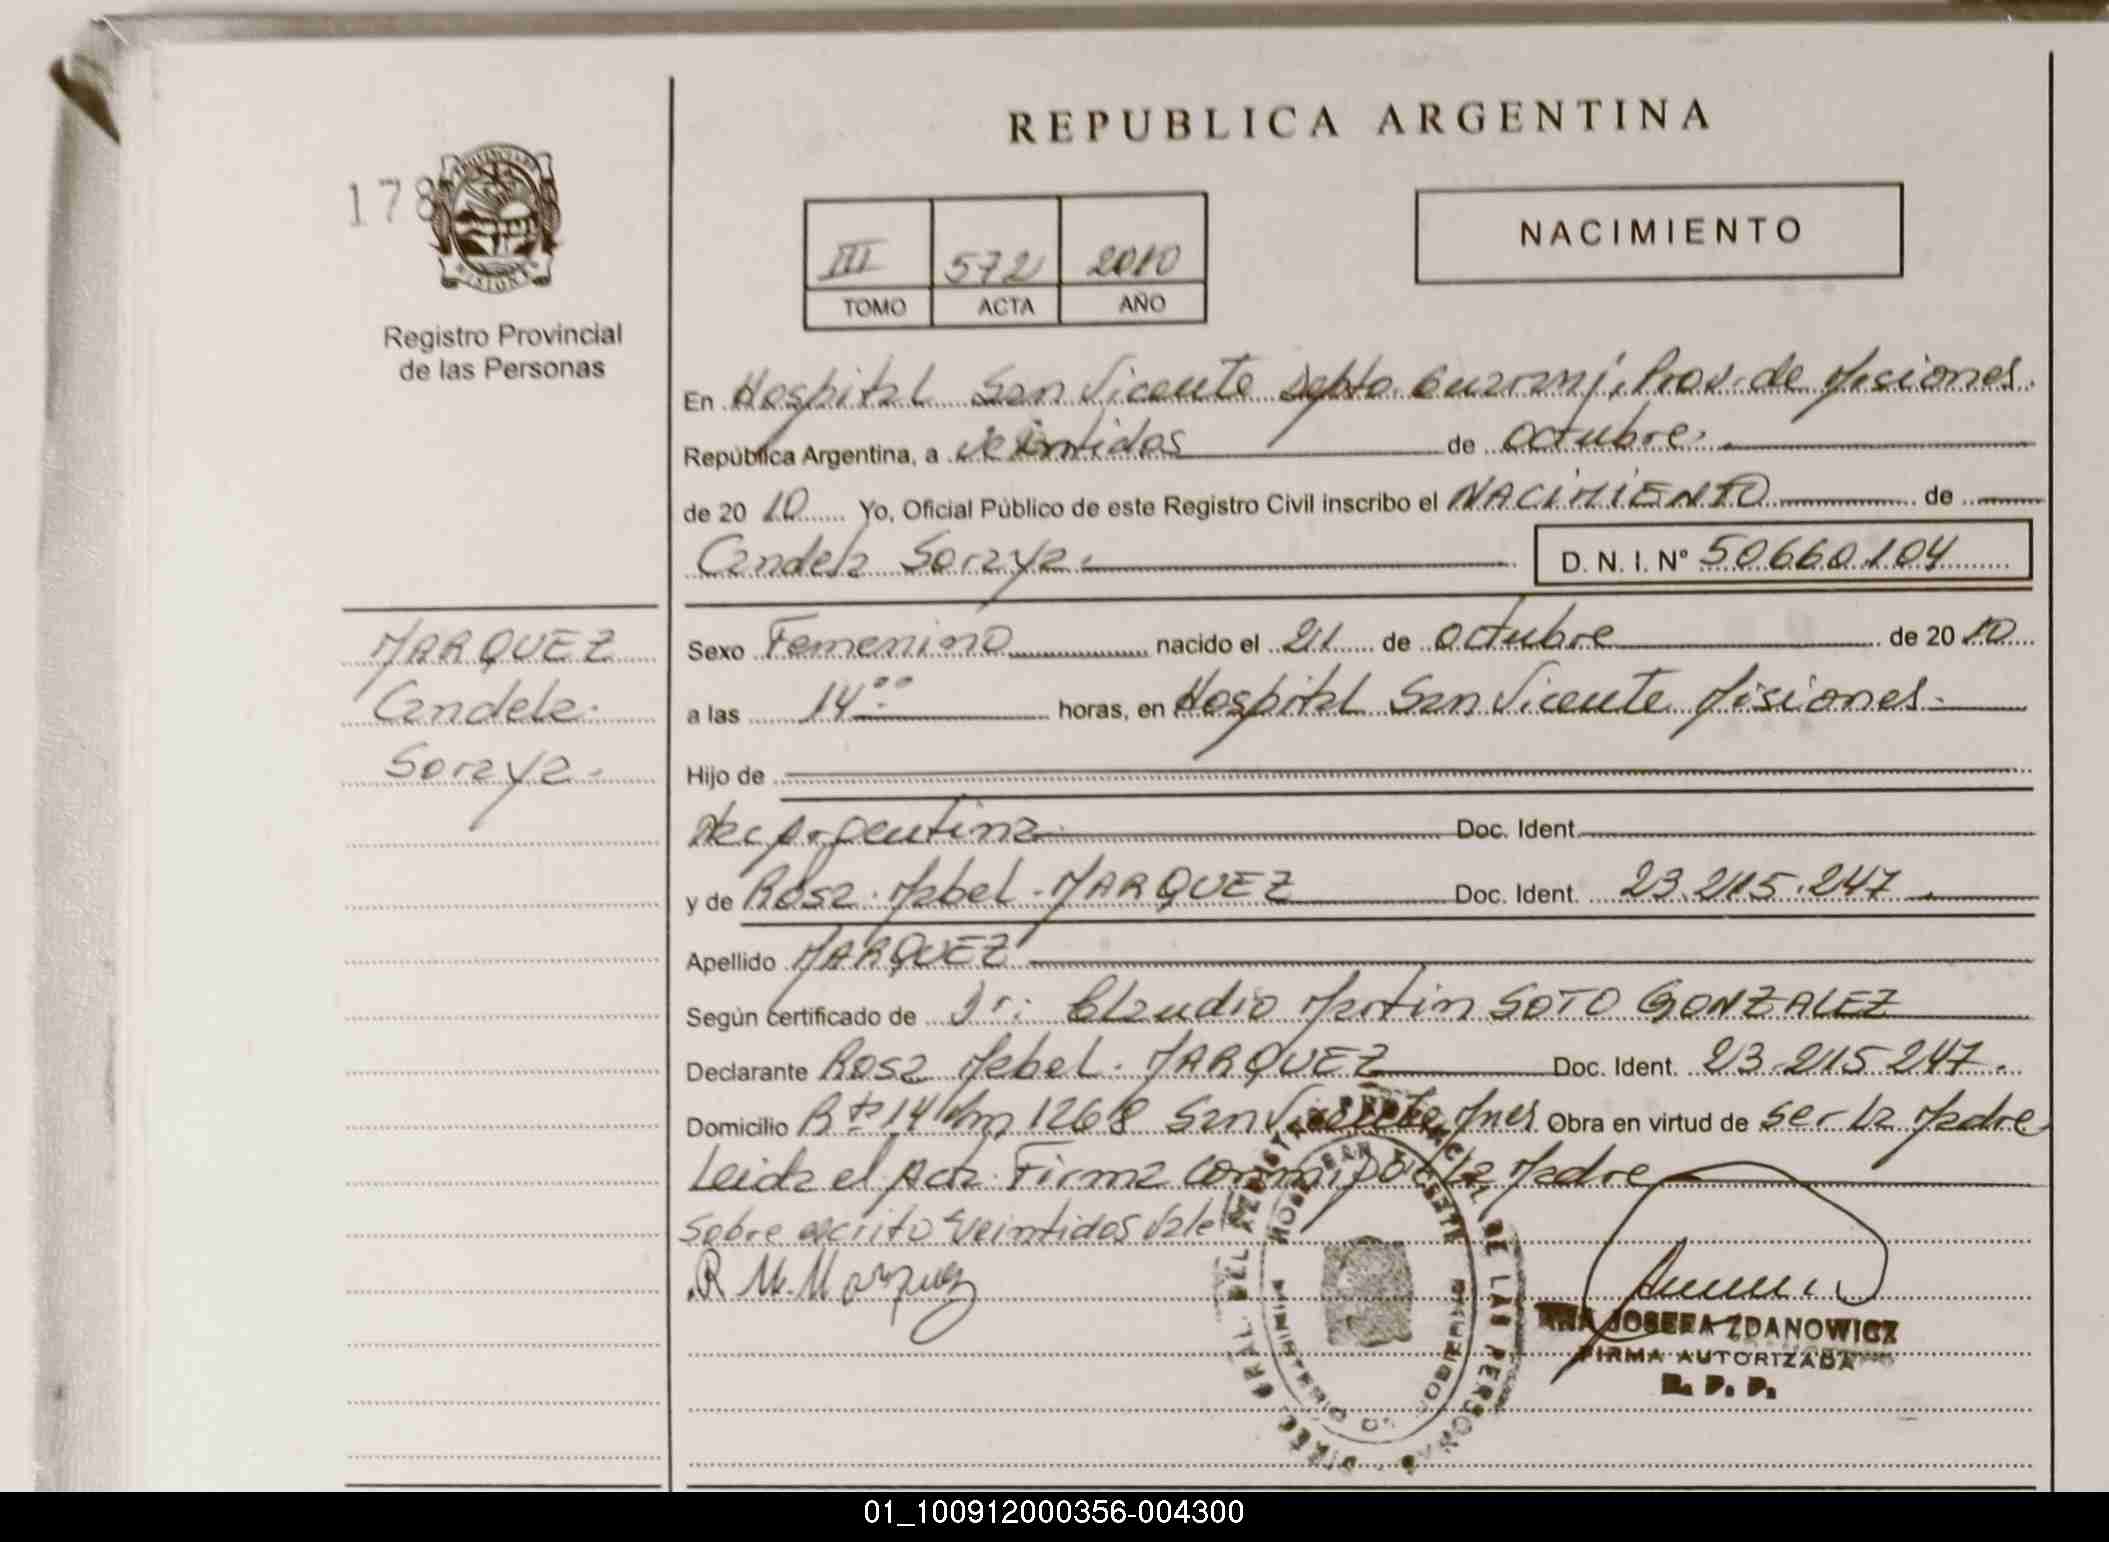 REPUBLICA ARGENTINA
178
Registro Provincial
de las Personas
III 572 2010
TOMO ACTA AÑO
NACIMIENTO
En Hospital San Vicente Depto Guarani, Prov. de Misiones.
República Argentina, a veintidos de octubre.
de 20 10 Yo, Oficial Público de este Registro Civil inscribo el NACIMIENTO de
Candela Soraya. D. N. I. N° 50660104
MARQUEZ
Candela
Soraya.
Sexo Femenino nacido el 21 de octubre de 20 10
a las 14°° horas, en Hospital San Vicente Misiones.
Hijo de
Nac Argentina Doc. Ident.
y de Rosa Mabel MARQUEZ Doc. Ident. 23.215.247.
Apellido MARQUEZ
Según certificado de Dr: Claudio Martin SOTO GONZALEZ
Declarante Rosa Mabel MARQUEZ Doc. Ident. 23.215.247.
Domicilio Rta 14 Km 1268 San Vicente Mnes Obra en virtud de ser la Madre
Leida el Acta Firma conmigo la Madre
Sobre escrito veintidos Vale
R M. Marquez
DIREC. GRAL. DEL REGISTRO PROVINCIAL DE LAS PERSONAS
MINISTERIO DE GOBIERNO
ANA JOSEFA ZDANOWICZ
FIRMA AUTORIZADA
R. P. P.
01_100912000356-004300